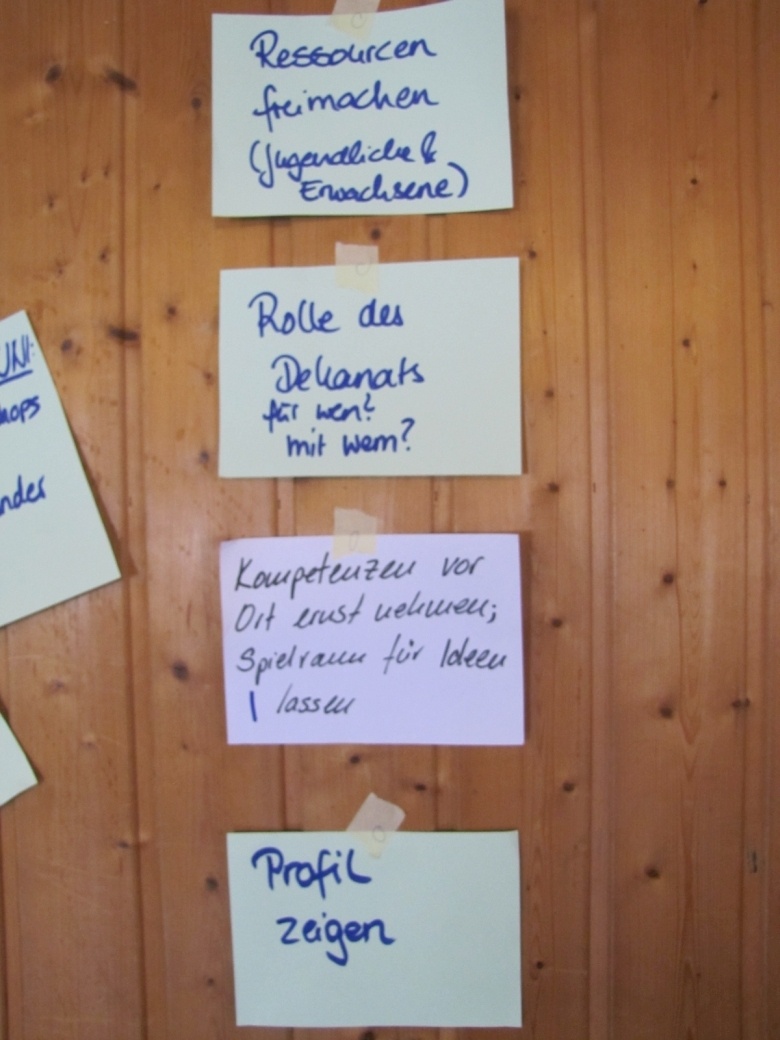 Ressourcen
freimachen
(Jugendliche &
Erwachsene)
Rolle des
Dekanats
für wen?
mit wem?
Kompetenzen vor
Ort ernst nehmen;
Spielraum für Ideen
lassen
Profil
zeigen